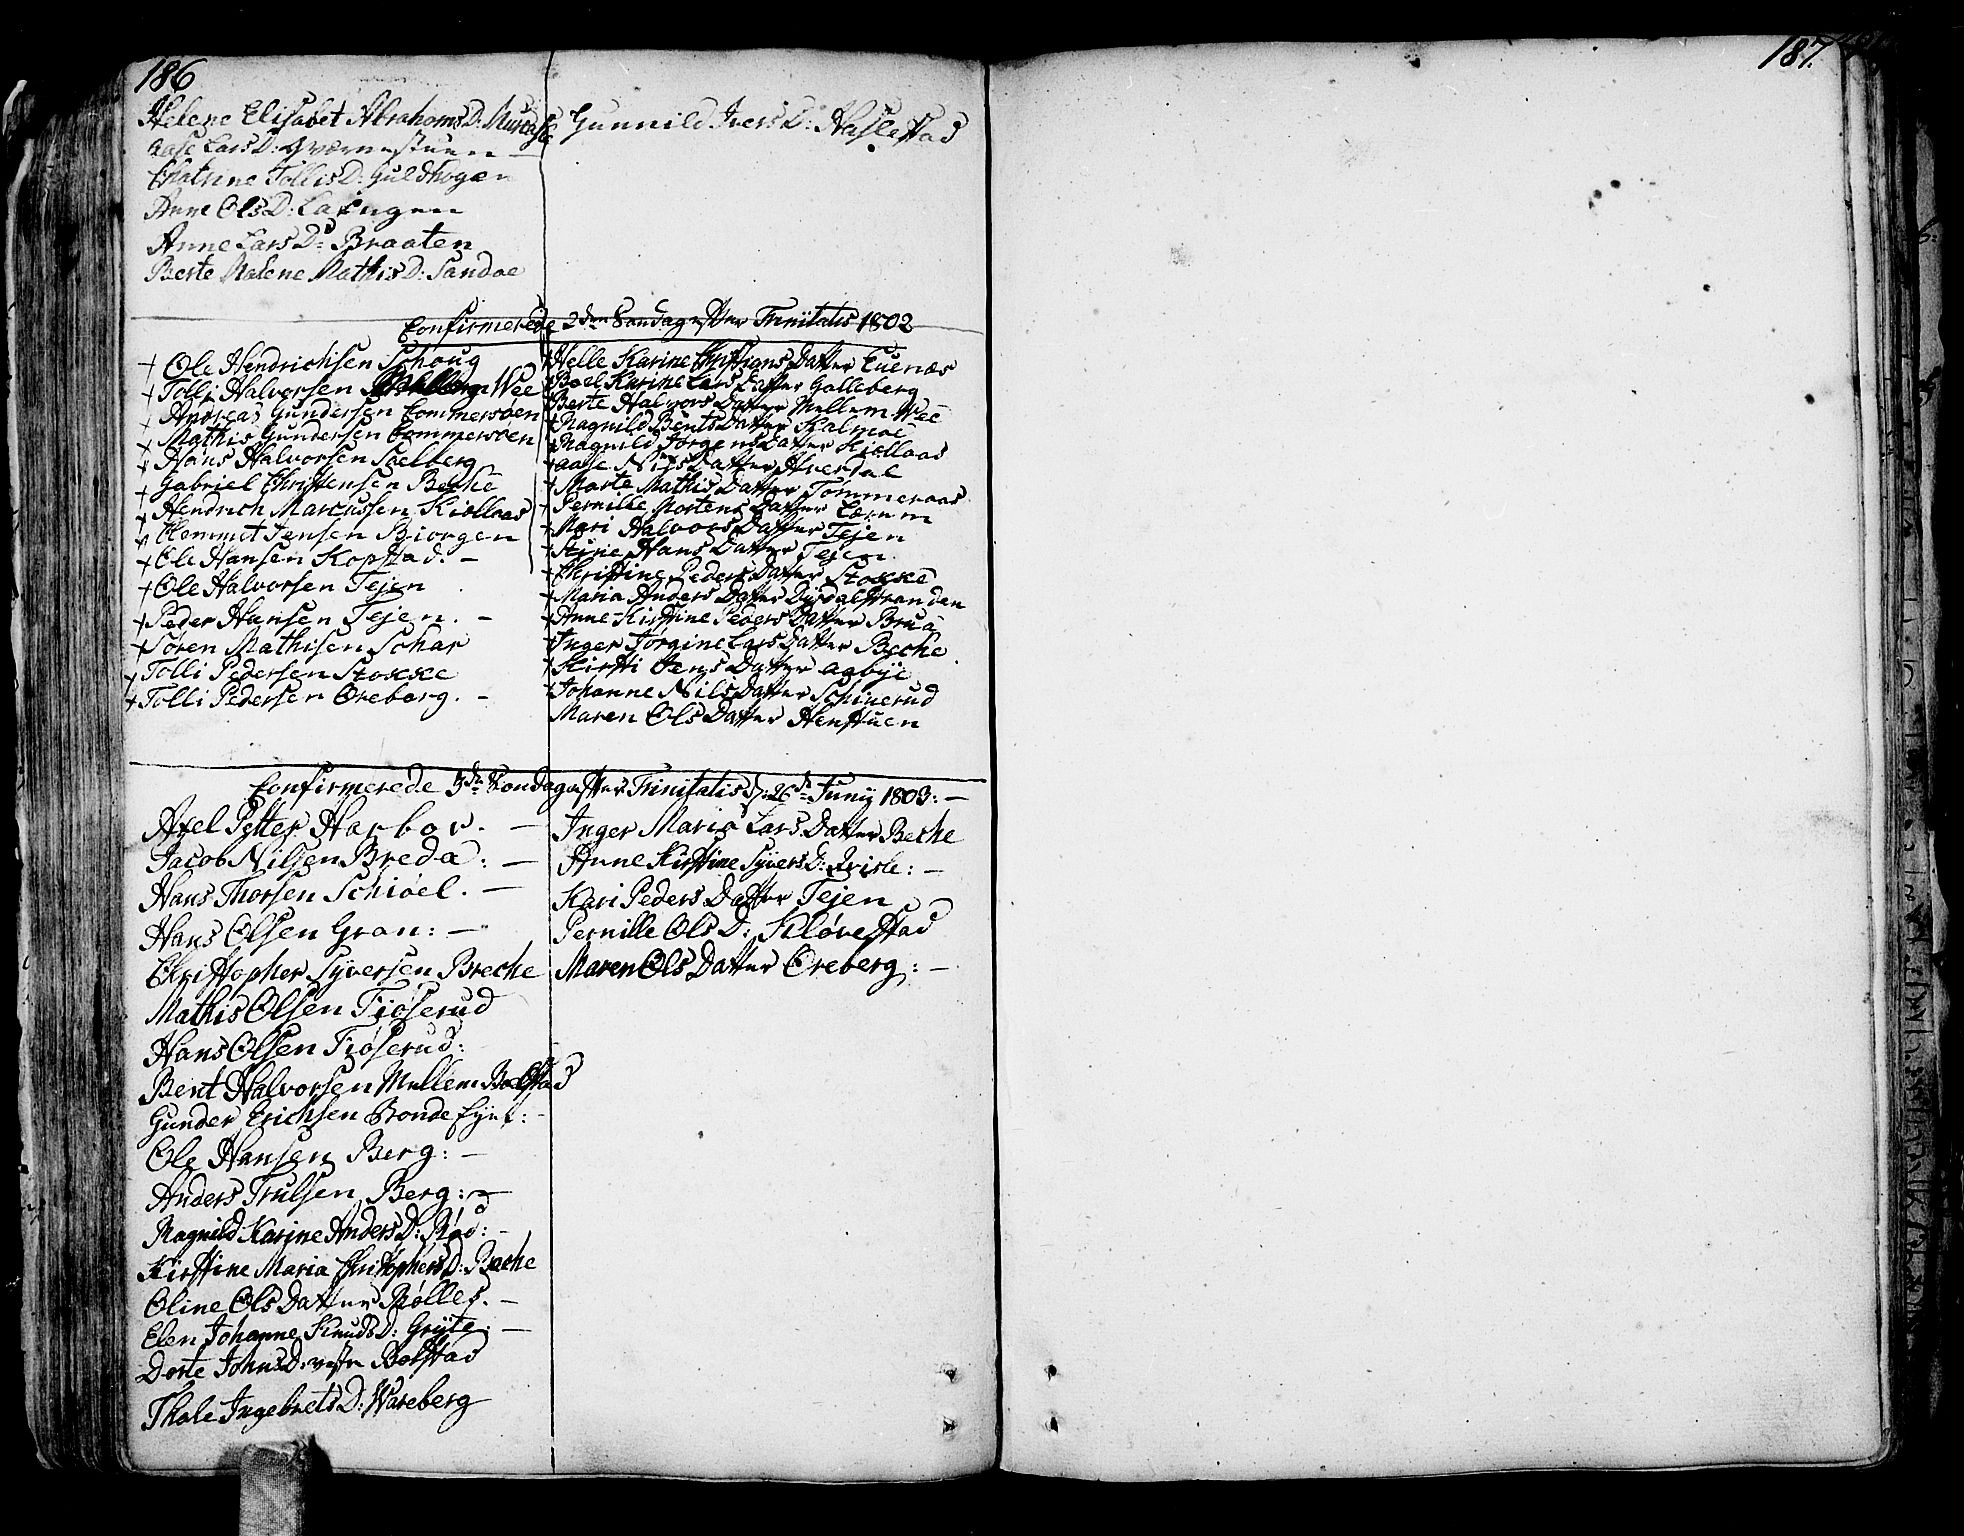 186
Helene Elisabet Abrahams D: Muraase
Aase Lars D: Qværnestuen
Chatrine Tollis D: Guldhogen
Anne Ols D:
Anne Lars D: Braaten
Berte Malene Mathis D: Sandøe
Gunnild Ivers D: Haslestad
Confirmerede 2den Søndag efter Trinitatis 1802
+ Ole Hendrichsen Schoug
+ Tolli Halvorsen Wee
+ Andreas Gundersen Commersøen
+ Mathis Gundersen Commersøen
+ Hans Halvorsen Soelberg
+ Gabriel Christensen Beche
+ Hendrich Marcussen Kiollaas
+ Clemmet Jensen Biorgen
+ Ole Hansen Kopstad. –
+ Ole Halvorsen Tejen
+ Peder Hansen Tejen. –
+ Søren Mathisen Schar
+ Tolli Pedersen Stokke
+ Tolli Pedersen Oreborg. –
+ Helle Karine Christians Datter Tuenæs
+ Boel Karine Lars Datter Galleberg
+ Berte Halvors Datter Mellem Wee
+ Ragnild Bents Datter Kalmoe
+ Ragnild Jørgens Datter Kiollaas
+ Aase Nils Datter Hverdal
+ Marte Mathis Datter Tømmeraas
+ Pernille Mortens Datter
+ Mari Halvors Datter Tejen
+ Stine Hans Datter Tejen
+ Christine Peders Datter Stokke
+ Maria Anders Datter Dyrdalstranden
+ Anne Kirstine Peders Datter Brua
+ Inger Jørgine Lars Datter Beche
+ Kirsti Jens Datter Agbye
+ Johanne Nils Datter Schinerud
Maren Ols Datter Henstuen
Confirmerede 3die Søndag efter Trinitatis D: 26de Juny 1803: –
Axel Petter Harbor. –
Jacob Nilsen Breda: –
Hans Thorsen Schiøel. –
Hans Olsen Gran: –
Christopher Syversen Breche
Mathis Olsen Fiøserud
Hans Olsen Fiøserud:
Bent Halvorsen Mellem Bolstad
Gunder Erichsen Bonde
Ole Hansen Berg: –
Anders Trulsen Berg: –
Ragnild Karine Anders D: Rød: –
Kirstine Maria Christophers D: Beche
Oline Ols Datter Rølles. –
Elen Johanne Knuds D: Gryte: –
Dorte Johns D: Bolstad
Thale Ingebrets D: Wareberg
Inger Maria Lars Datter Beche
Anne Kirstine Syvers D: Qvisle: –
Kari Peders Datter Tejen
Pernille Ols D: Kløvestad
Maren Ols Datter Oreberg: –
187.